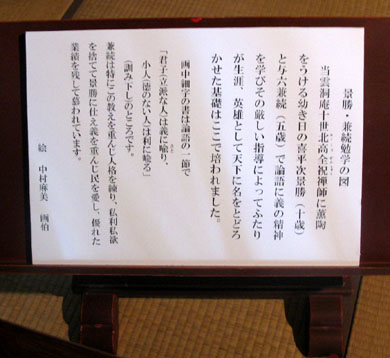 景勝・兼続勉学の図
当雲洞庵十世北高全祝禅師に薫陶
をうける幼き日の喜平次景勝(十歳)
と与六兼続(五歳)で論語に義の精神
を学びその厳しい指導によってふたり
が生涯、英雄として天下に名をとどろ
かせた基礎はここで培われました。
画中細字の書は論語の一節で
「君子(立派な人)は義に喩り、
小人(徳のない人)は利に喩る」
(訓み下し)のところです。
兼続は特にこの教えを重んじ人格を練り、私利私欲
を捨てて景勝に仕え義を重んじ民を愛し、優れた
業績を残して慕われています。
絵 中村麻美 画伯